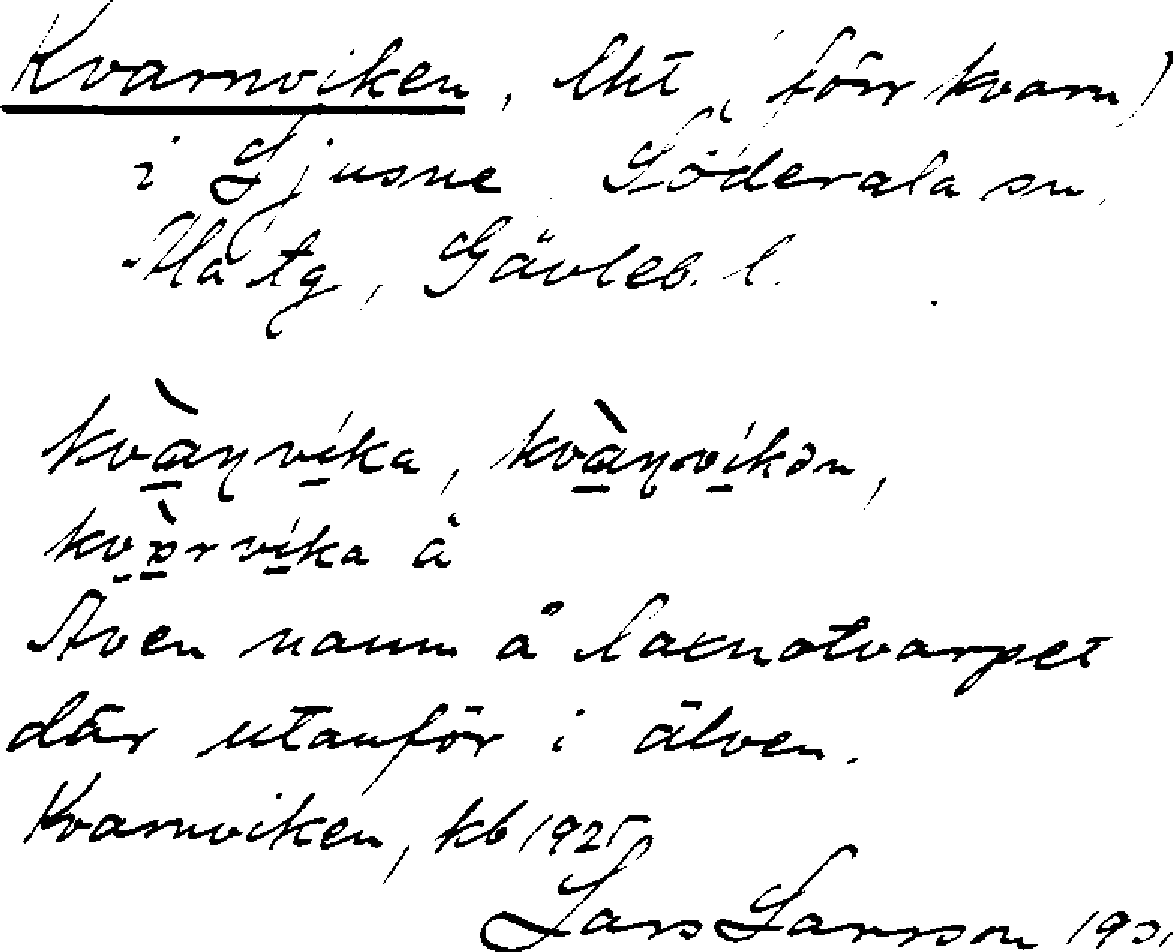 Kvarnviken, lht (förr kvarn)
i Ljusne, Söderala sn,
Ala tg, Gävleb. l.
kvàṇvi̱ka, kvàṇvi̱kən,
vi̱ka å
Även namn å laxnotvarpet
där utanför i älven.
Kvarnviken, kb 1925
Lars Larsson